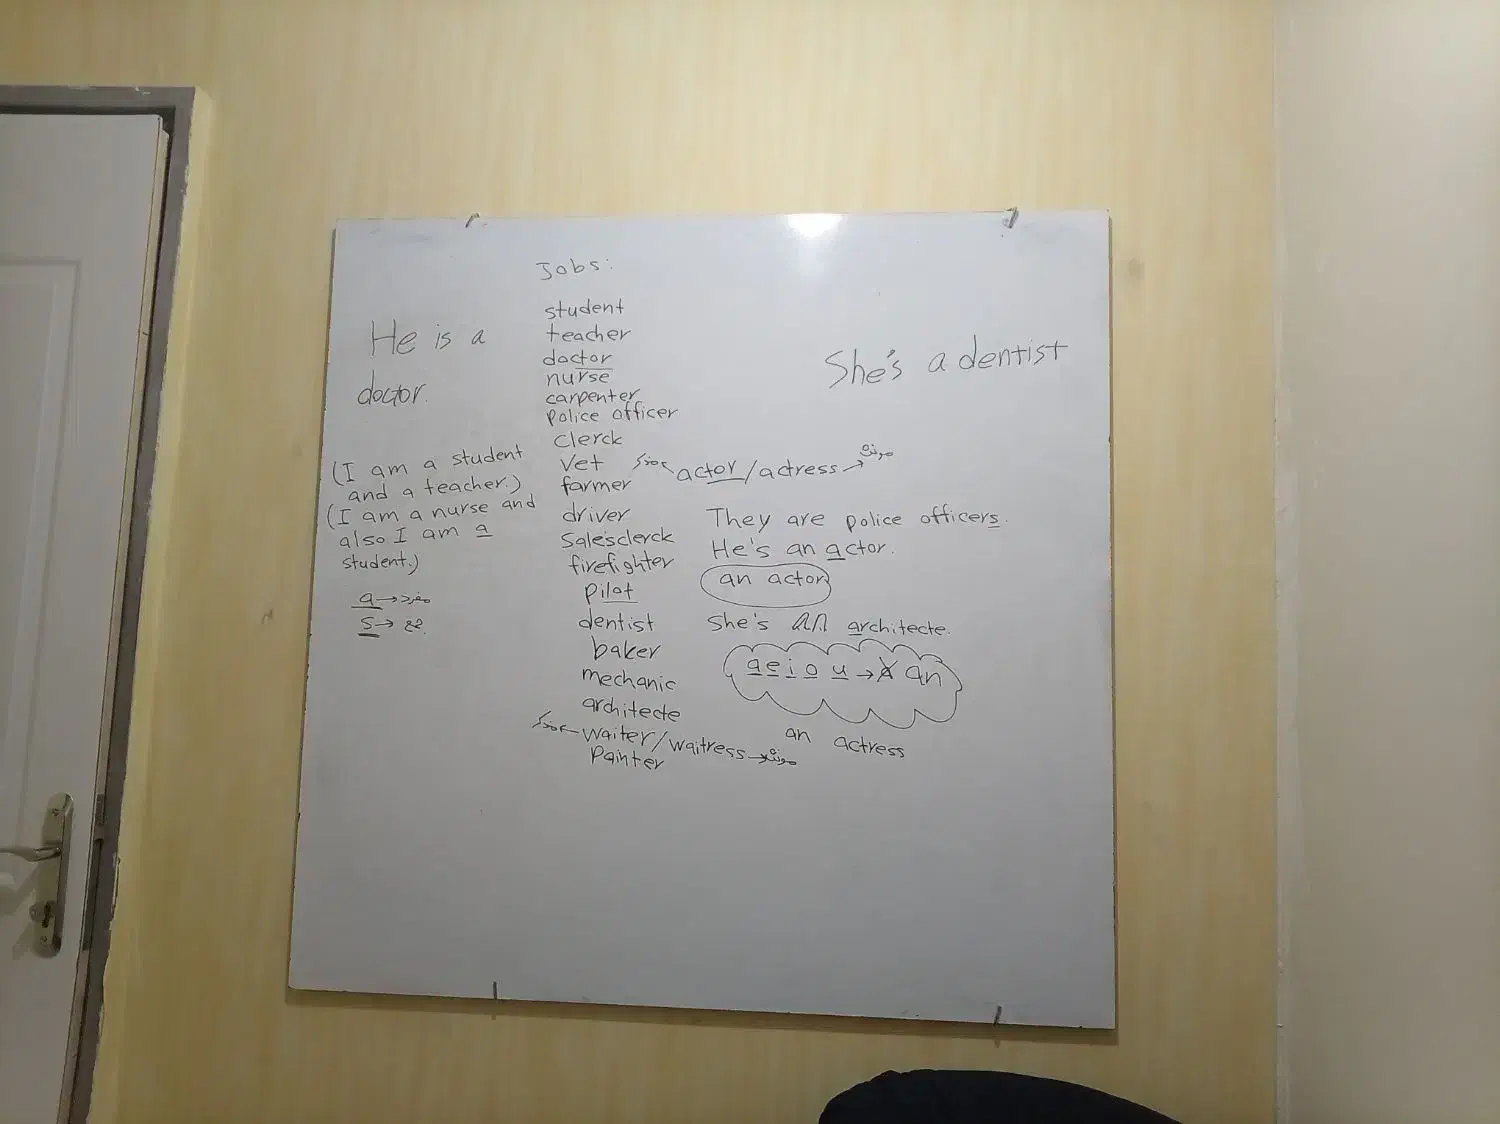 Jobs:
He is a
doctor.
(I am a student
and a teacher.)
(I am a nurse and
also I am a
student.)
a → مفرد
s → جمع
student
teacher
doctor
nurse
carpenter
police officer
clerck
vet
farmer
driver
sale'sclerck
firefighter
pilot
dentist
baker
mechanic
architecte
مذکر ← waiter/waitress → مونث
painter
She's a dentist
مذکر ← actor/actress → مونث
They are police officers.
He's an actor.
an actor
She's an architecte.
a e i o u → a an
an actress